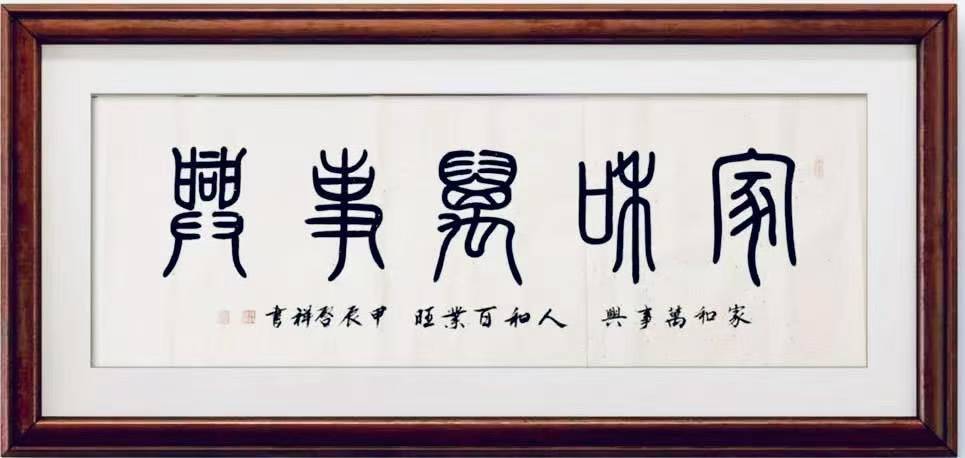 家和萬事興
家和萬事興 人和百業旺 甲辰啓祥書